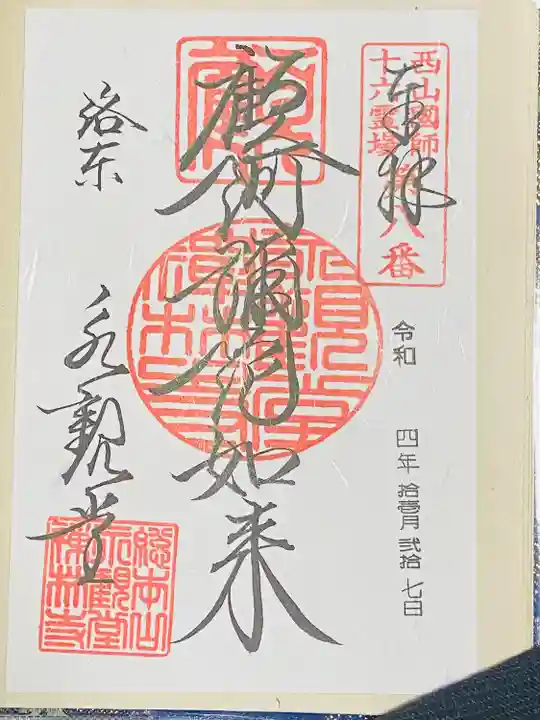 奉拝
西山國師
十六霊場
第八番
令和 四年 拾壱月 弐拾 七日
顧阿彌陀如来
洛東
永観堂
総本山
永観堂
禅林寺